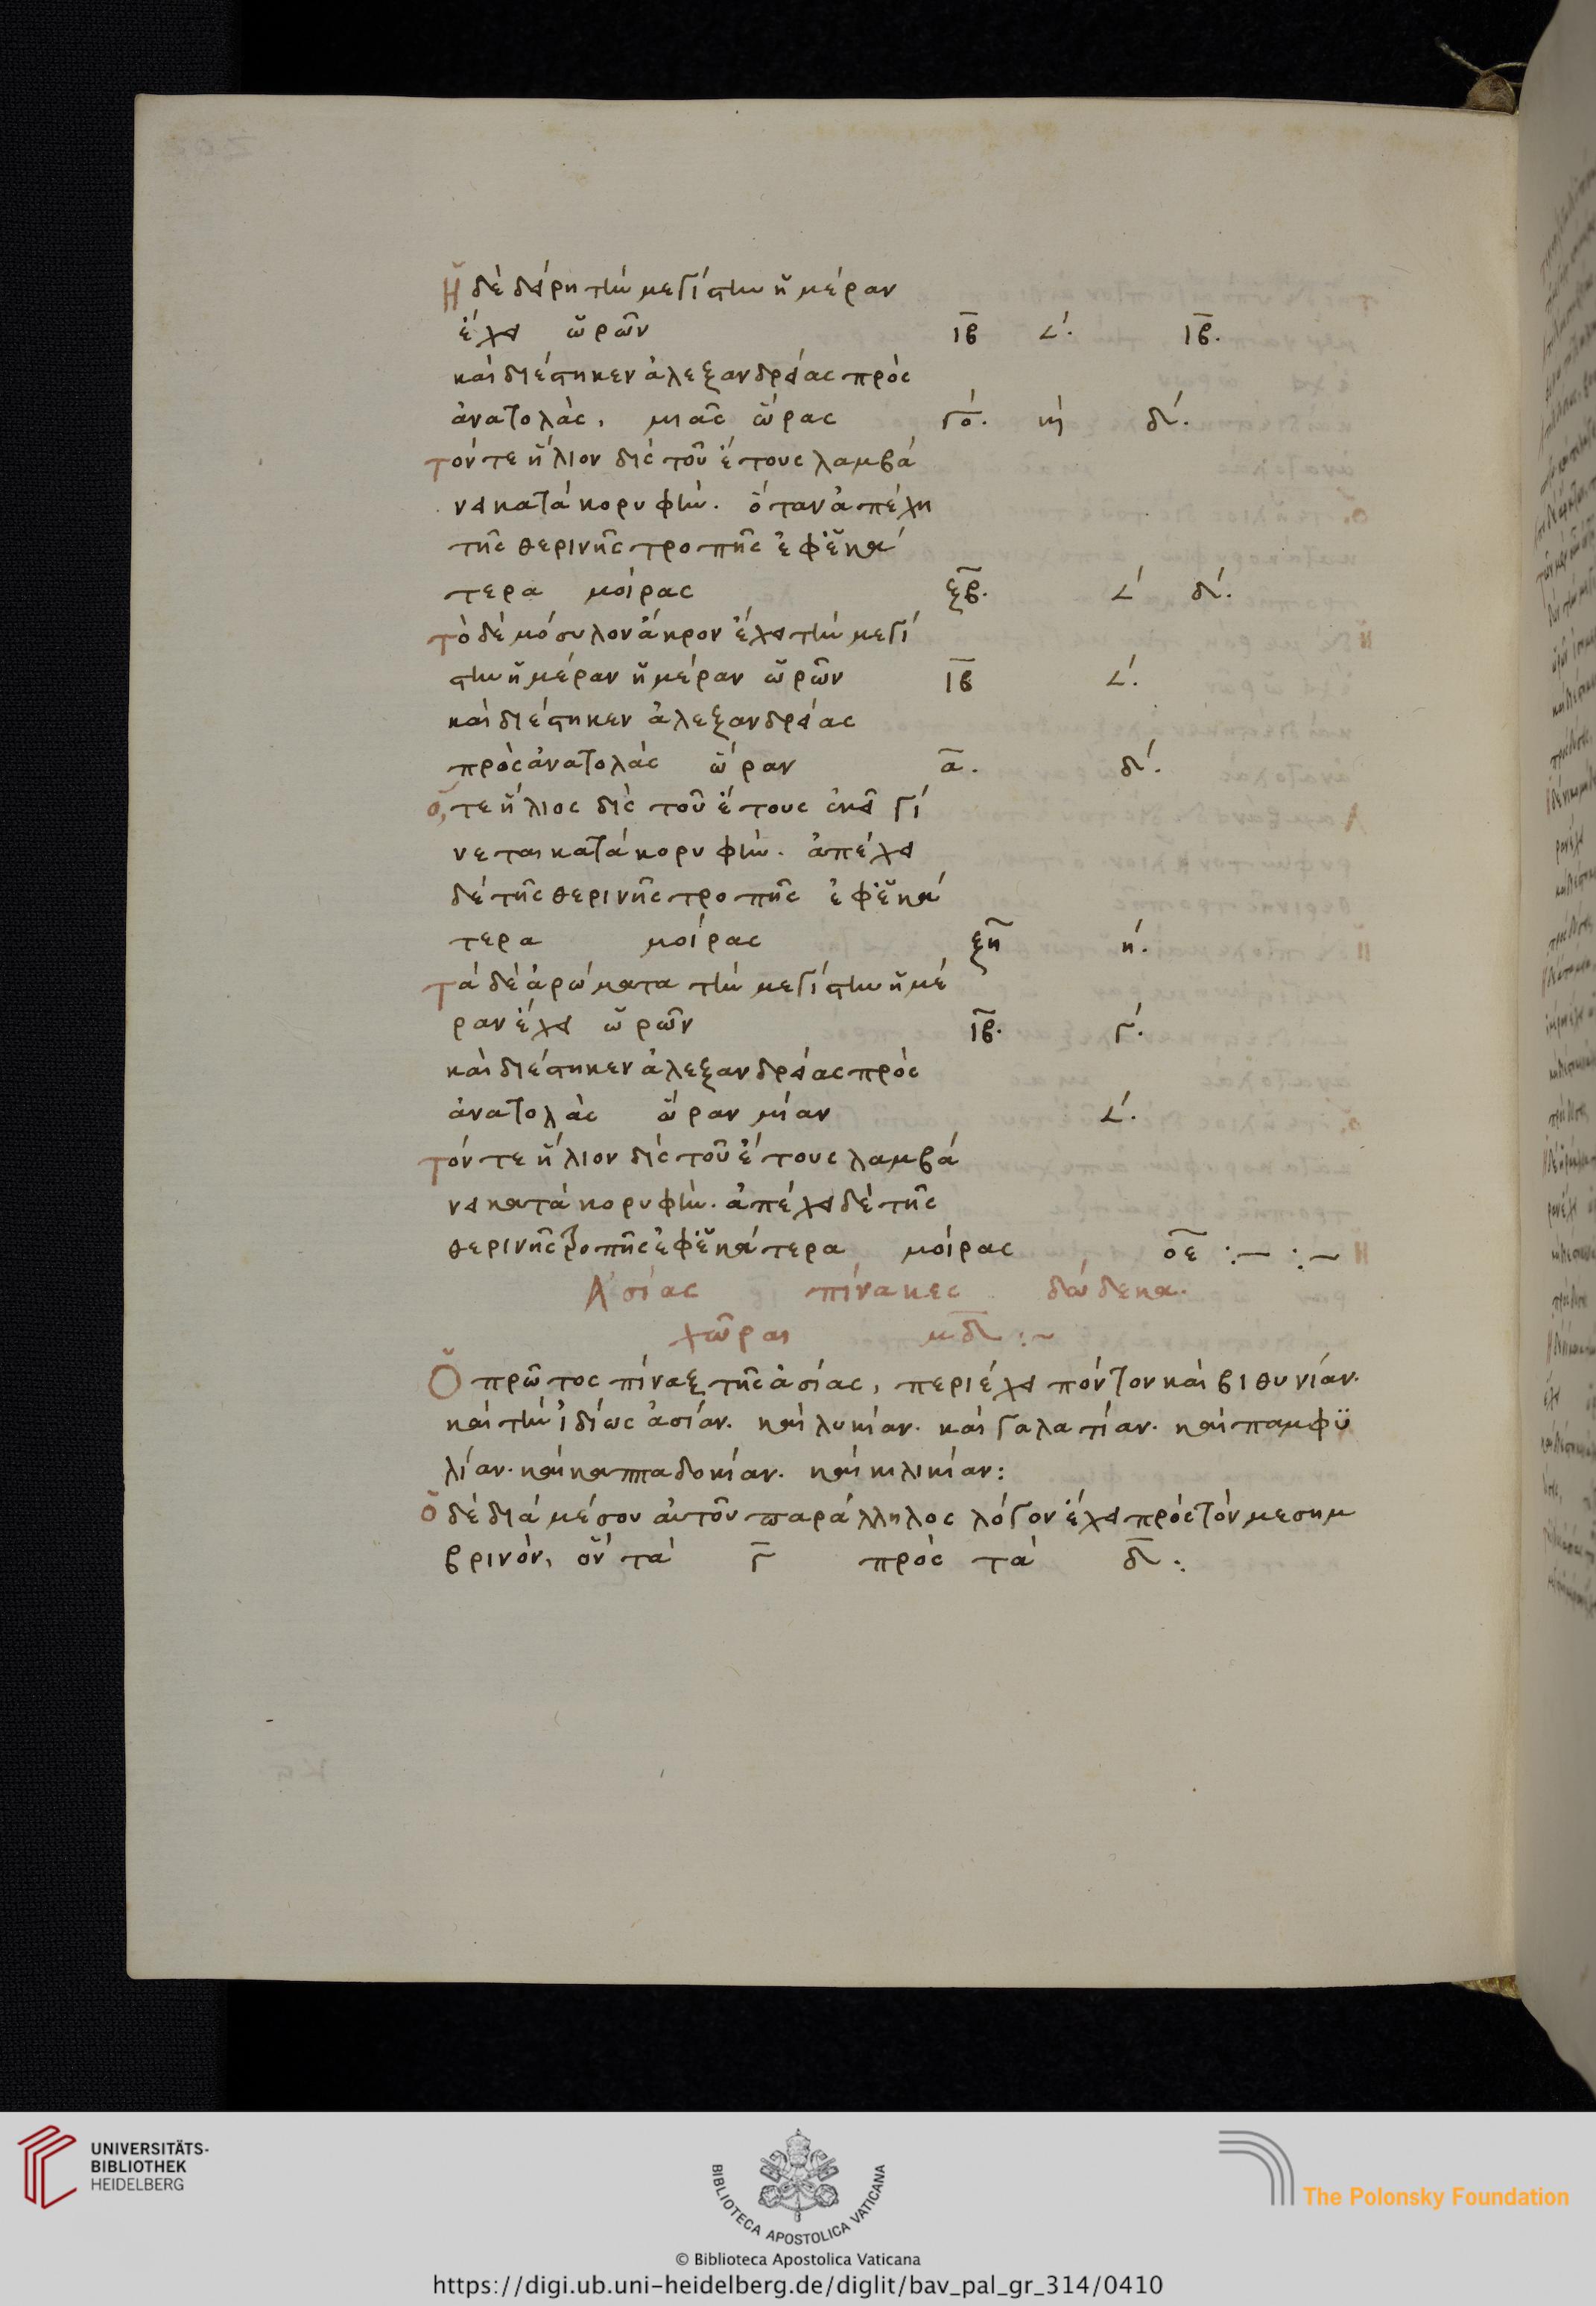 Ἡ δὲ δείρη τὴν μεγίστην ἡμέραν
ἔχει ὡρῶν ιβ ∠΄. ιβ.
καὶ διέστηκεν ἀλεξανδρείας πρὸς
ἀνατολὰς, μιᾶς ὥρας γο΄. κη δ΄.
τόν τε ἥλιον δὶς τοῦ ἔτους λαμβά
νει κατὰ κορυφὴν. ὅταν ἀπέχη
τῆς θερινῆς τροπῆς ἐφ' ἑκά
τερα μοίρας ξβ. ∠΄ δ΄.
τὸ δὲ μόσυλον ἄκρον ἔχει τὴν μεγί
στην ἡμέραν ἡμέραν ὡρῶν ιβ ∠΄.
καὶ διέστηκεν ἀλεξανδρείας
πρὸς ἀνατολὰς ὥραν α. δ΄.
ὅ, τε ἥλιος δὶς τοῦ ἔτους ἐκεῖ γί
νεται κατὰ κορυφὴν. ἀπέχει
δὲ τῆς θερινῆς τροπῆς ἐφ' ἑκά
τερα μοίρας ξη η΄.
τὰ δὲ ἀρώματα τὴν μεγίστην ἡμέ
ραν ἔχει ὡρῶν ιβ. γ΄.
καὶ διέστηκεν ἀλεξανδρείας πρὸς
ἀνατολὰς ὥραν μίαν ∠΄.
τόν τε ἥλιον δὶς τοῦ ἔτους λαμβά
νει κατὰ κορυφὴν. ἀπέχει δὲ τῆς
θερινῆς τροπῆς ἐφ' ἑκάτερα μοίρας οε :— :~
Ἀσίας πίνακες δώδεκα.
χῶραι μδ :~
Ὁ πρῶτος πίναξ τῆς ἀσίας, περιέχει πόντον καὶ βιθυνίαν.
καὶ τὴν ἰδίως ἀσίαν. καὶ λυκίαν. καὶ γαλατίαν. καὶ παμφϋ
λίαν. καὶ καππαδοκίαν. καὶ κιλικίαν:
ὁ δὲ διὰ μέσου αὐτοῦ παράλληλος λόγον ἔχει πρὸς τὸν μεσημ
βρινὸν, ὃν τὰ γ πρὸς τὰ δ :.
UNIVERSITÄTS-
BIBLIOTHEK
HEIDELBERG
BIBLIOTECA APOSTOLICA VATICANA
The Polonsky Foundation
© Biblioteca Apostolica Vaticana
https://digi.ub.uni-heidelberg.de/diglit/bav_pal_gr_314/0410